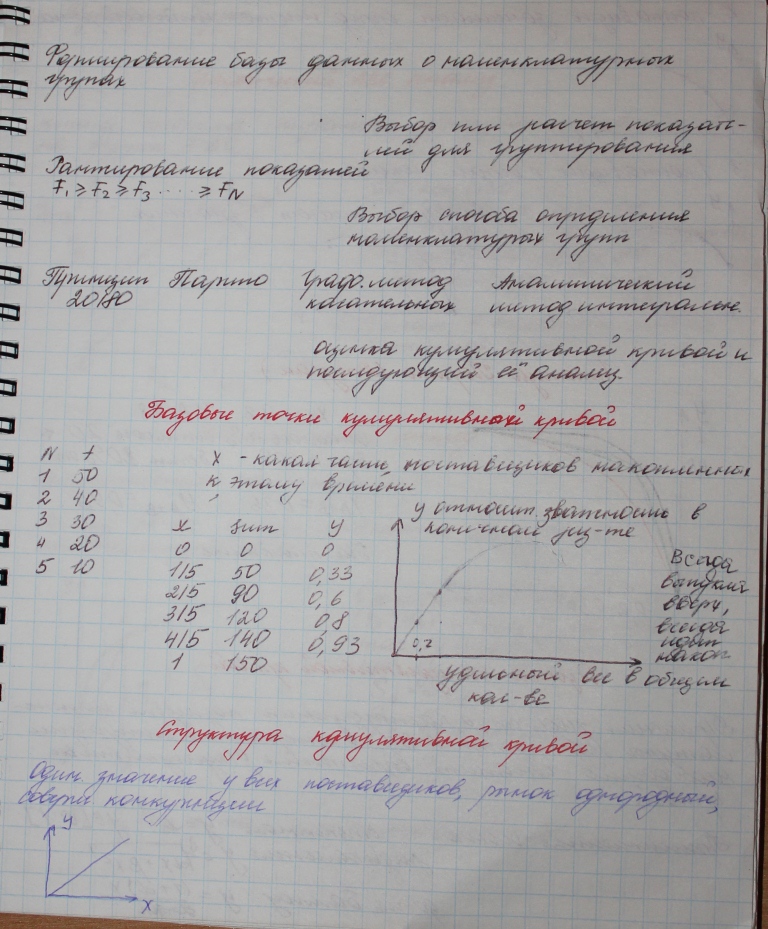 Формирование базы данных о номенклатурных
группах
Выбор или расчет показате-
лей для группирования
Ранжирование показателей
F₁ ≥ F₂ ≥ F₃ ..... ≥ F_N
Выбор способа определения
номенклатурых групп
Принцип Парето Граф. метод Аналитический
20/80 касательных метод интегральн.
оценка кумулятивной кривой и
последующий её анализ.
Базовые точки кумулятивной кривой
N f x - какая часть поставщиков накопленных
1 50 к этому времени
2 40 y относит. в
3 30 x y конечном рез-те
4 20 0 0 0 Всегда
5 10 1/5 50 0,33 выпукла
2/5 90 0,6 вверх,
3/5 120 0,8 всегда
4/5 140 0,93 0,2 идет
1 150 накоп
удельный вес в общем
кол-ве
Структура кумулятивной кривой
Один значение у всех поставщиков, рынок однородный,
соверш конкуренции
y
x